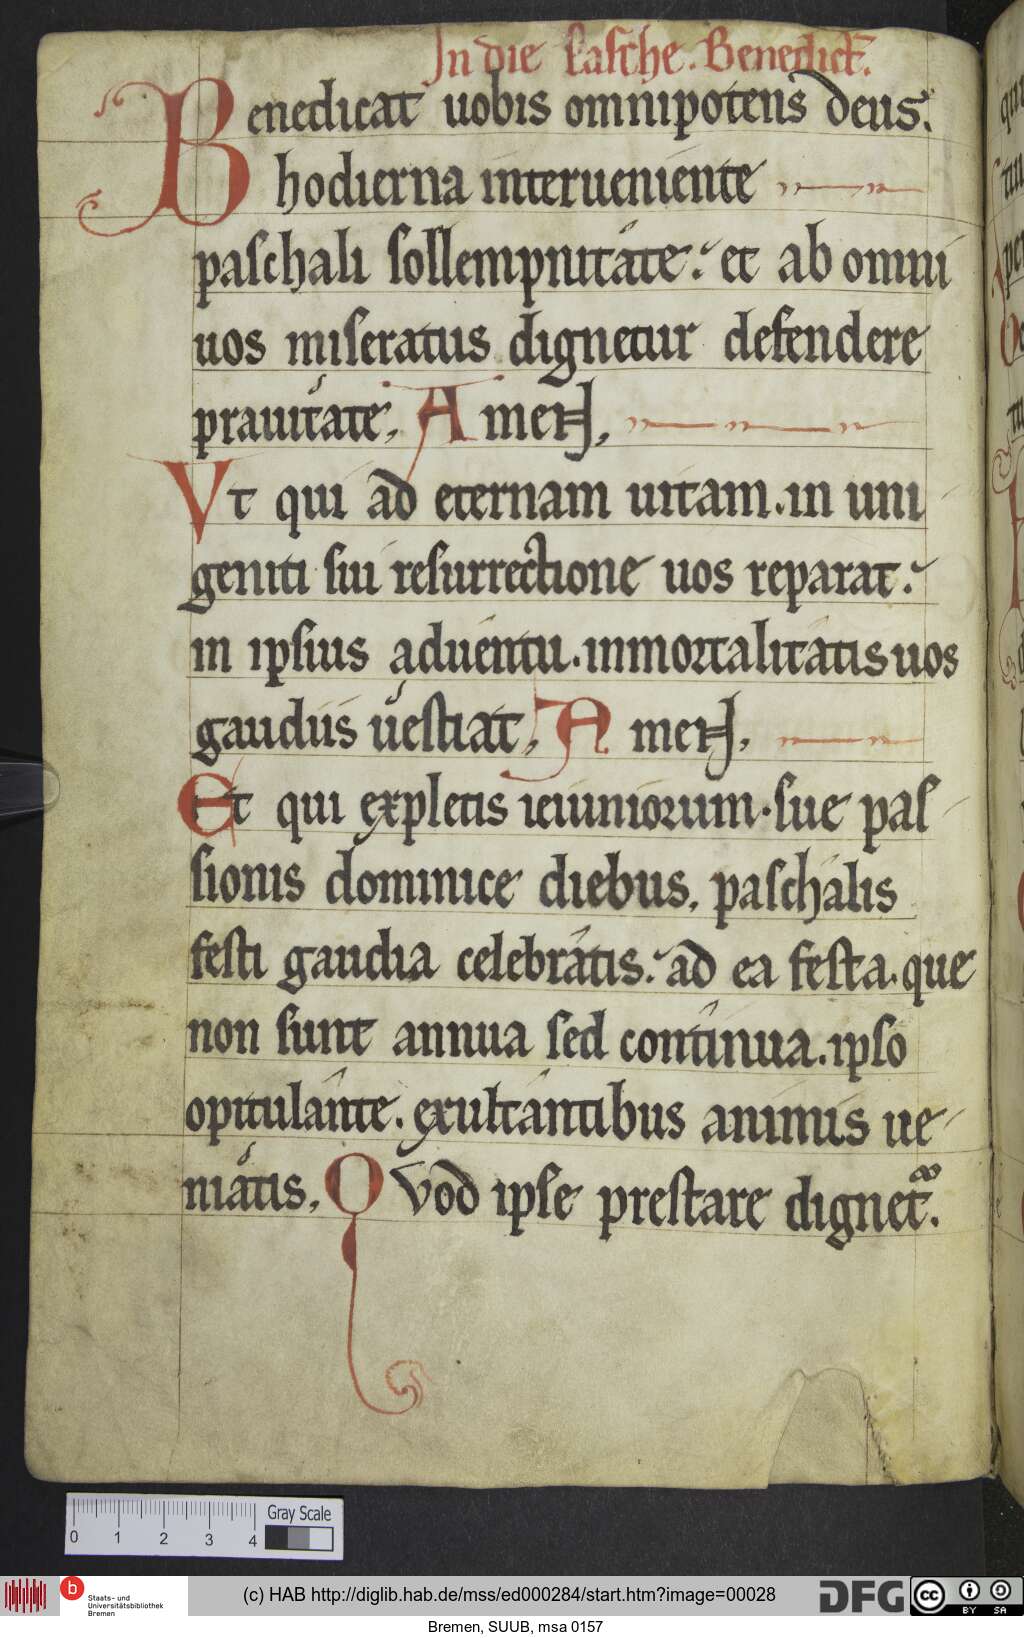 In die Pasche. Benedict̄.
Benedicat uobis omnipotens deus.
hodierna interueniente
paschali sollempnitate. et ab omni
uos miseratus dignetur defendere
prauitate, AmeN,
Vt qui ad eternam uitam. in uni
geniti sui resurrectione uos reparat.
in ipsius aduentu. inmortalitatis uos
gaudiis uestiat, AmeN,
Et qui expletis ieiuniorum. sue pas
sionis dominice diebus. paschalis
festi gaudia celebratis. ad ea festa. que
non sunt annua sed continua. ipso
opitulante. exultantibus animis ue
niatis, QVod ipse prestare dignet᷑.
0 1 2 3 4
Gray Scale
b
Staats- und
Universitätsbibliothek
Bremen
(c) HAB http://diglib.hab.de/mss/ed000284/start.htm?image=00028
DFG
cc
BY SA
Bremen, SUUB, msa 0157